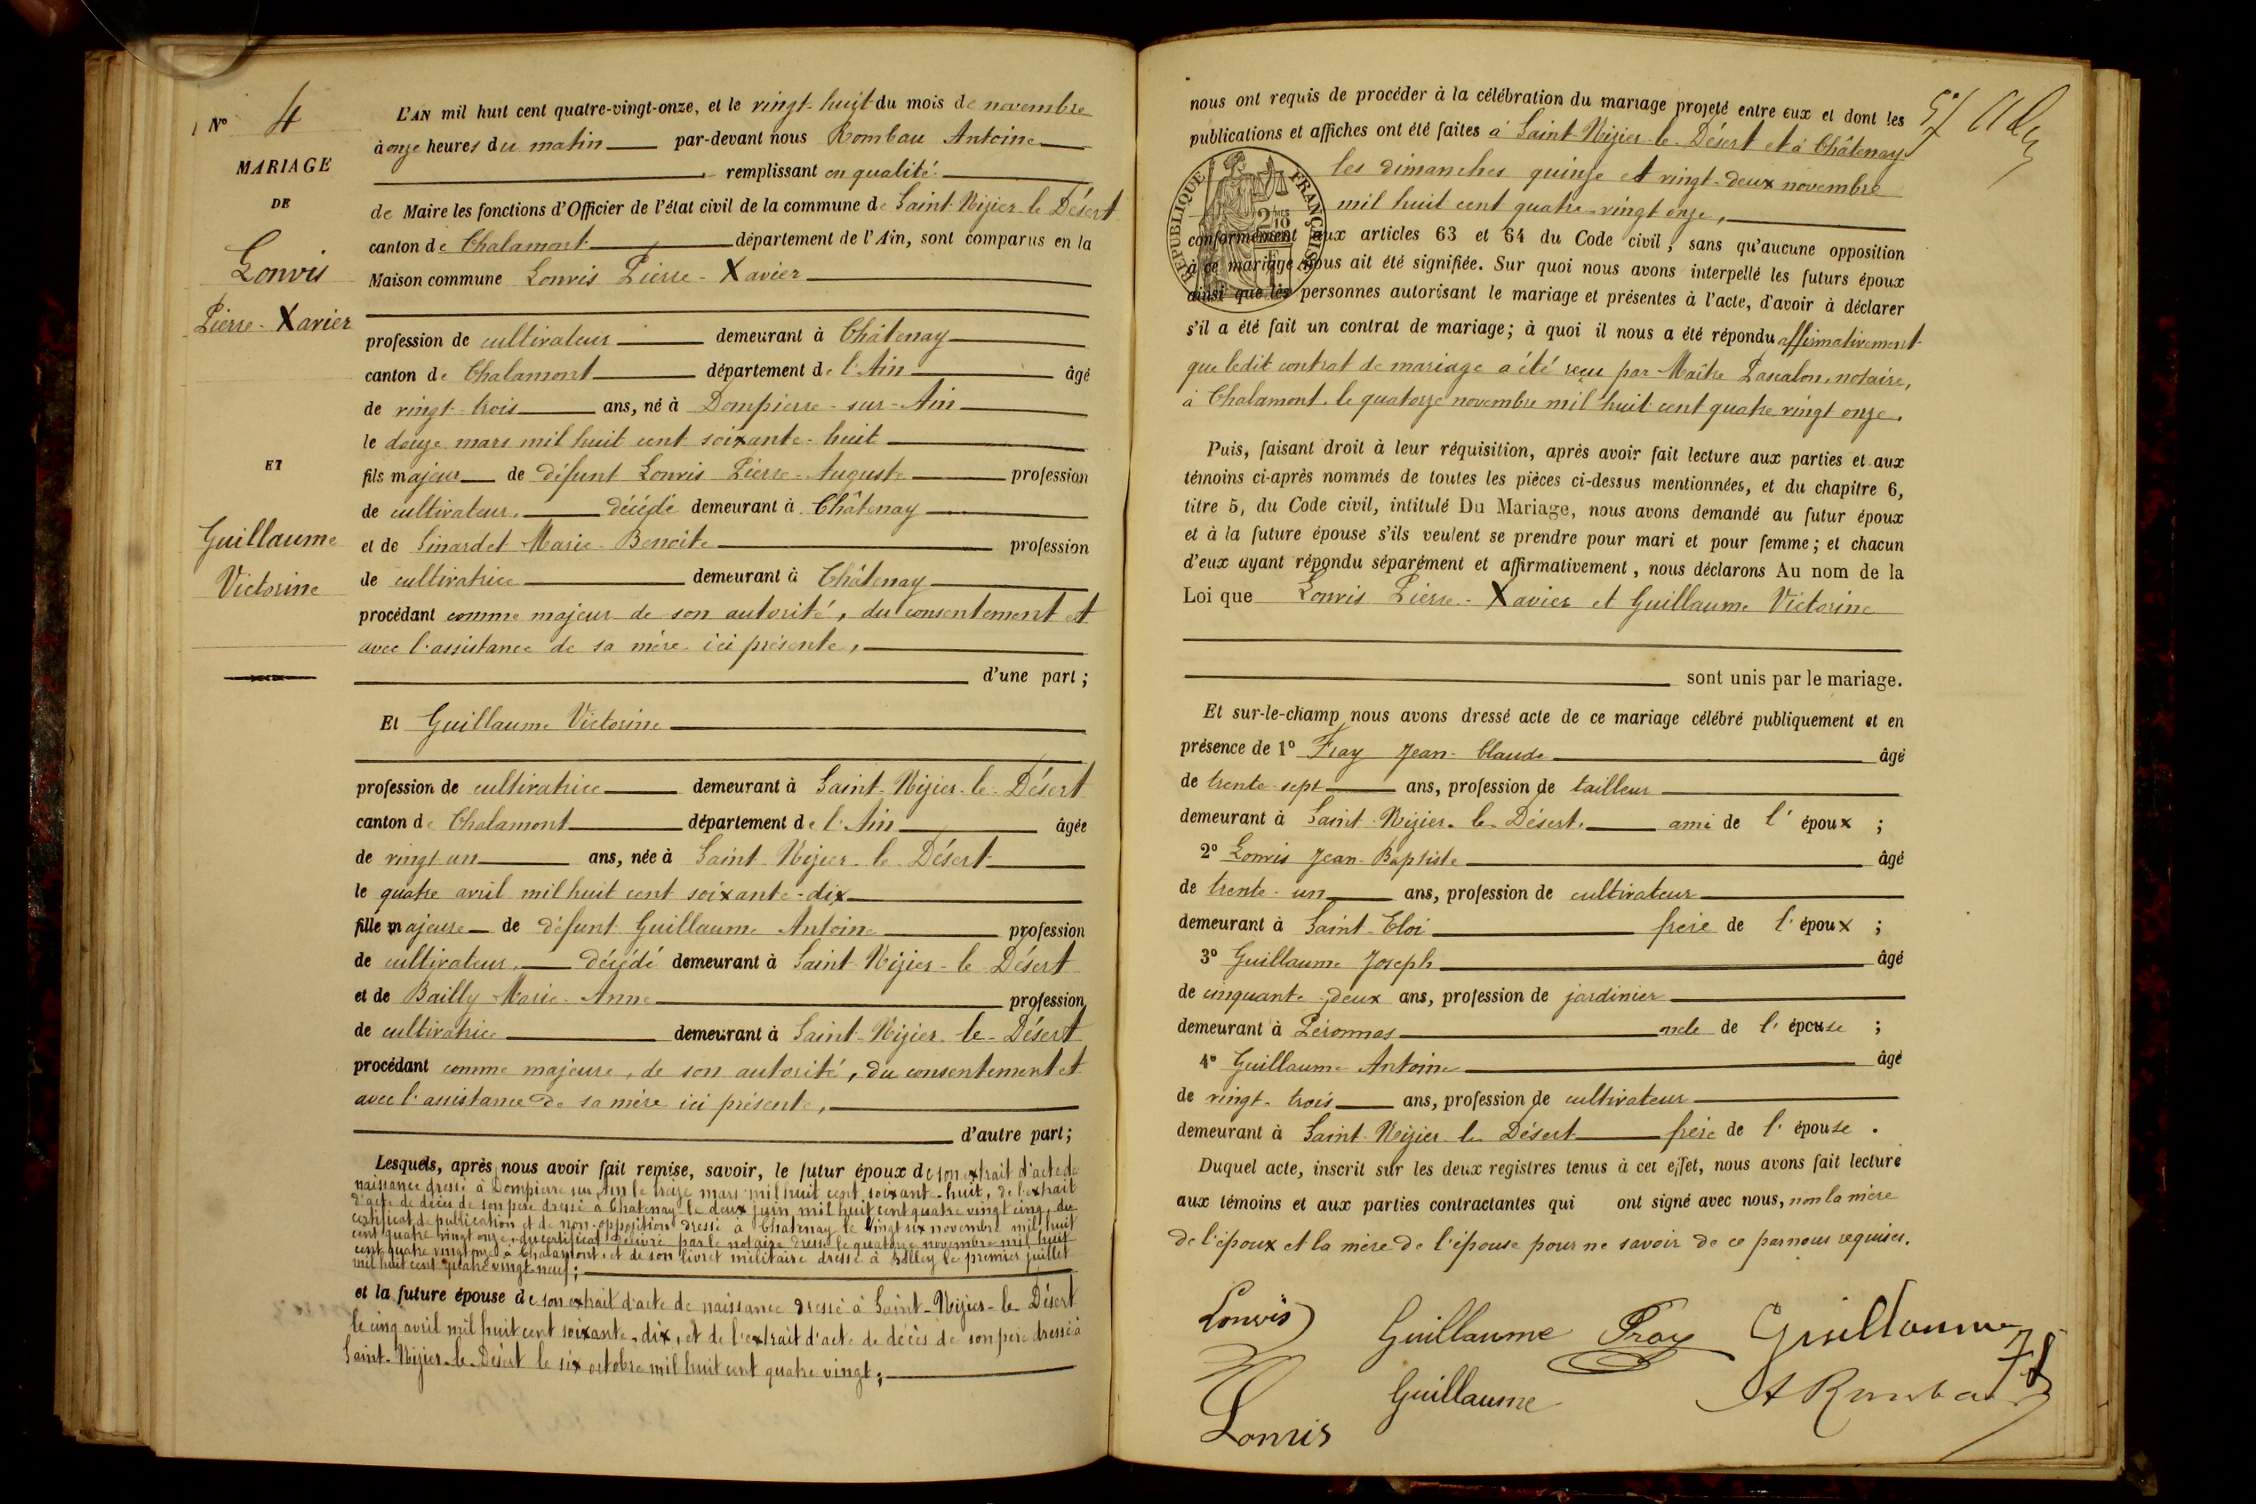 N° 4
MARIAGE
DE
Lonvis
Pierre-Xavier
ET
Guillaume
Victorine
L'AN mil huit cent quatre-vingt-onze, et le vingt-huit du mois de novembre
à onze heures du matin par-devant nous Rombau Antoine
remplissant en qualité
de Maire les fonctions d'Officier de l'état civil de la commune de Saint-Nizier-le-Désert
canton de Chalamont département de l'Ain, sont comparus en la
Maison commune Lonvis Pierre-Xavier
profession de cultivateur demeurant à Châtenay
canton de Chalamont département de l'Ain âgé
de vingt-trois ans, né à Dompierre-sur-Ain
le douze mars mil huit cent soixante-huit
fils majeur de défunt Lonvis Pierre-Auguste profession
de cultivateur, décédé demeurant à Châtenay
et de Sinardet Marie-Benoite profession
de cultivatrice demeurant à Châtenay
procédant comme majeur de son autorité, du consentement et
avec l'assistance de sa mère ici présente,
d'une part;
Et Guillaume Victorine
profession de cultivatrice demeurant à Saint-Nizier-le-Désert
canton de Chalamont département de l'Ain âgée
de vingt un ans, née à Saint-Nizier-le-Désert
le quatre avril mil huit cent soixante-dix
fille majeure de défunt Guillaume Antoine profession
de cultivateur, décédé demeurant à Saint-Nizier-le-Désert
et de Bailly Marie-Anne profession
de cultivatrice demeurant à Saint-Nizier-le-Désert
procédant comme majeure, de son autorité, du consentement et
avec l'assistance de sa mère ici présente,
d'autre part;
Lesquels, après nous avoir fait remise, savoir, le futur époux de son extrait d'acte de
naissance dressé à Dompierre sur Ain le treize mars mil huit cent soixante-huit, de l'extrait
d'acte de décès de son père dressé à Châtenay le deux juin mil huit cent quatre vingt cinq, du
certificat de publication et de non-opposition dressé à Châtenay le vingt six novembre mil huit
cent quatre vingt onze, du certificat délivré par le notaire dressé le quatorze novembre mil huit
cent quatre vingt onze à Chalamont, et de son livret militaire dressé à Belley le premier juillet
mil huit cent quatre vingt neuf;
et la future épouse de son extrait d'acte de naissance dressé à Saint-Nizier-le-Désert
le cinq avril mil huit cent soixante-dix, et de l'extrait d'acte de décès de son père dressé à
Saint-Nizier-le-Désert le six octobre mil huit cent quatre vingt;
nous ont requis de procéder à la célébration du mariage projeté entre eux et dont les
publications et affiches ont été faites à Saint-Nizier-le-Désert et à Châtenay
les dimanches quinze et vingt-deux novembre
mil huit cent quatre-vingt onze,
RÉPUBLIQUE FRANÇAISE
conformément aux articles 63 et 64 du Code civil; sans qu'aucune opposition
à ce mariage nous ait été signifiée. Sur quoi nous avons interpellé les futurs époux
ainsi que les personnes autorisant le mariage et présentes à l'acte, d'avoir à déclarer
s'il a été fait un contrat de mariage; à quoi il nous a été répondu affirmativement
que ledit contrat de mariage a été reçu par Maître Pancalon, notaire,
à Chalamont, le quatorze novembre mil huit cent quatre vingt onze.
Puis, faisant droit à leur réquisition, après avoir fait lecture aux parties et aux
témoins ci-après nommés de toutes les pièces ci-dessus mentionnées, et du chapitre 6,
titre 5, du Code civil, intitulé Du Mariage, nous avons demandé au futur époux
et à la future épouse s'ils veulent se prendre pour mari et pour femme; et chacun
d'eux ayant répondu séparément et affirmativement, nous déclarons Au nom de la
Loi que Lonvis Pierre-Xavier et Guillaume Victorine
sont unis par le mariage.
Et sur-le-champ nous avons dressé acte de ce mariage célébré publiquement et en
présence de 1° Fray Jean-Claude âgé
de trente-sept ans, profession de tailleur
demeurant à Saint-Nizier-le-Désert, ami de l'époux;
2° Lonvis Jean-Baptiste âgé
de trente-un ans, profession de cultivateur
demeurant à Saint-Eloi frère de l'époux;
3° Guillaume Joseph âgé
de cinquante-deux ans, profession de jardinier
demeurant à Péronnas oncle de l'épouse;
4° Guillaume Antoine âgé
de vingt-trois ans, profession de cultivateur
demeurant à Saint-Nizier-le-Désert frère de l'épouse.
Duquel acte, inscrit sur les deux registres tenus à cet effet, nous avons fait lecture
aux témoins et aux parties contractantes qui ont signé avec nous, non la mère
de l'époux et la mère de l'épouse pour ne savoir de ce par nous requises.
Lonvis Guillaume Fray Guillaume
Lonvis Guillaume A Rombau